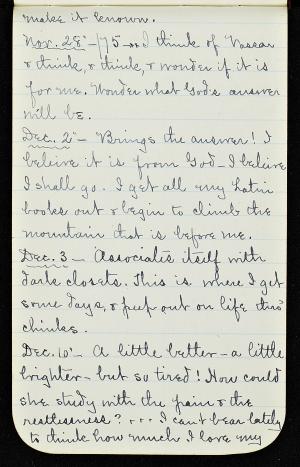 make it known.
Nov. 28 - /75 - I think of Vassar
& think, & think, & wonder if it is
for me. Wonder what God's answer
will be.
Dec. 2 - Brings the answer! I
believe it is from God - I believe
I shall go. I get all my Latin
books out & begin to climb the
mountain that is before me.
Dec. 3 - Associates itself with
dark closets. This is where I get
some days, & peep out on life thro'
chinks.
Dec. 10 - A little better - a little
brighter - but so tired! How could
she study with the pain & the
restlessness? ... I can't bear lately
to think how much I love my